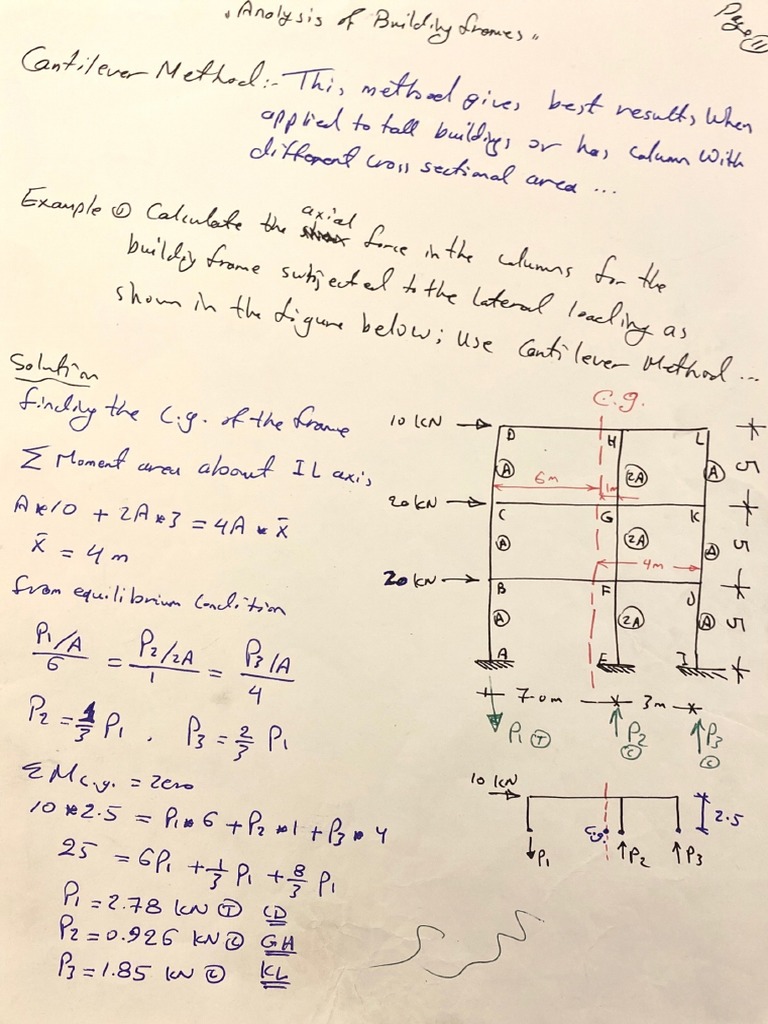 "Analysis of Building frames"
Page 11
Cantilever Method:- This method gives best results when
applied to tall buildings or has column with
different cross sectional area ...
Example ① Calculate the axial force in the columns for the
building frame subjected to the lateral loading as
shown in the figure below; use Cantilever Method ...
Solution
finding the C.g. of the frame
Σ Moment area about IL axis
A*10 + 2A*3 = 4A * x̄
x̄ = 4 m
from equilibrium condition
P1/A / 6 = P2/2A / 1 = P3/A / 4
P2 = 1/3 P1 , P3 = 2/3 P1
ΣM c.g. = Zero
10*2.5 = P1*6 + P2*1 + P3*4
25 = 6P1 + 1/3 P1 + 8/3 P1
P1 = 2.78 kN Ⓣ CD
P2 = 0.926 kN Ⓒ GH
P3 = 1.85 kN Ⓒ KL
C.g.
10 kN D H L
Ⓐ 6m 1m 2A Ⓐ 5
20 kN C G K
Ⓐ 2A 4m Ⓐ 5
20 kN B F J
Ⓐ 2A Ⓐ 5
A E I
7.0m 3m
P1 Ⓣ P2 Ⓒ P3 Ⓒ
10 kN
C.g. 2.5
P1 P2 P3